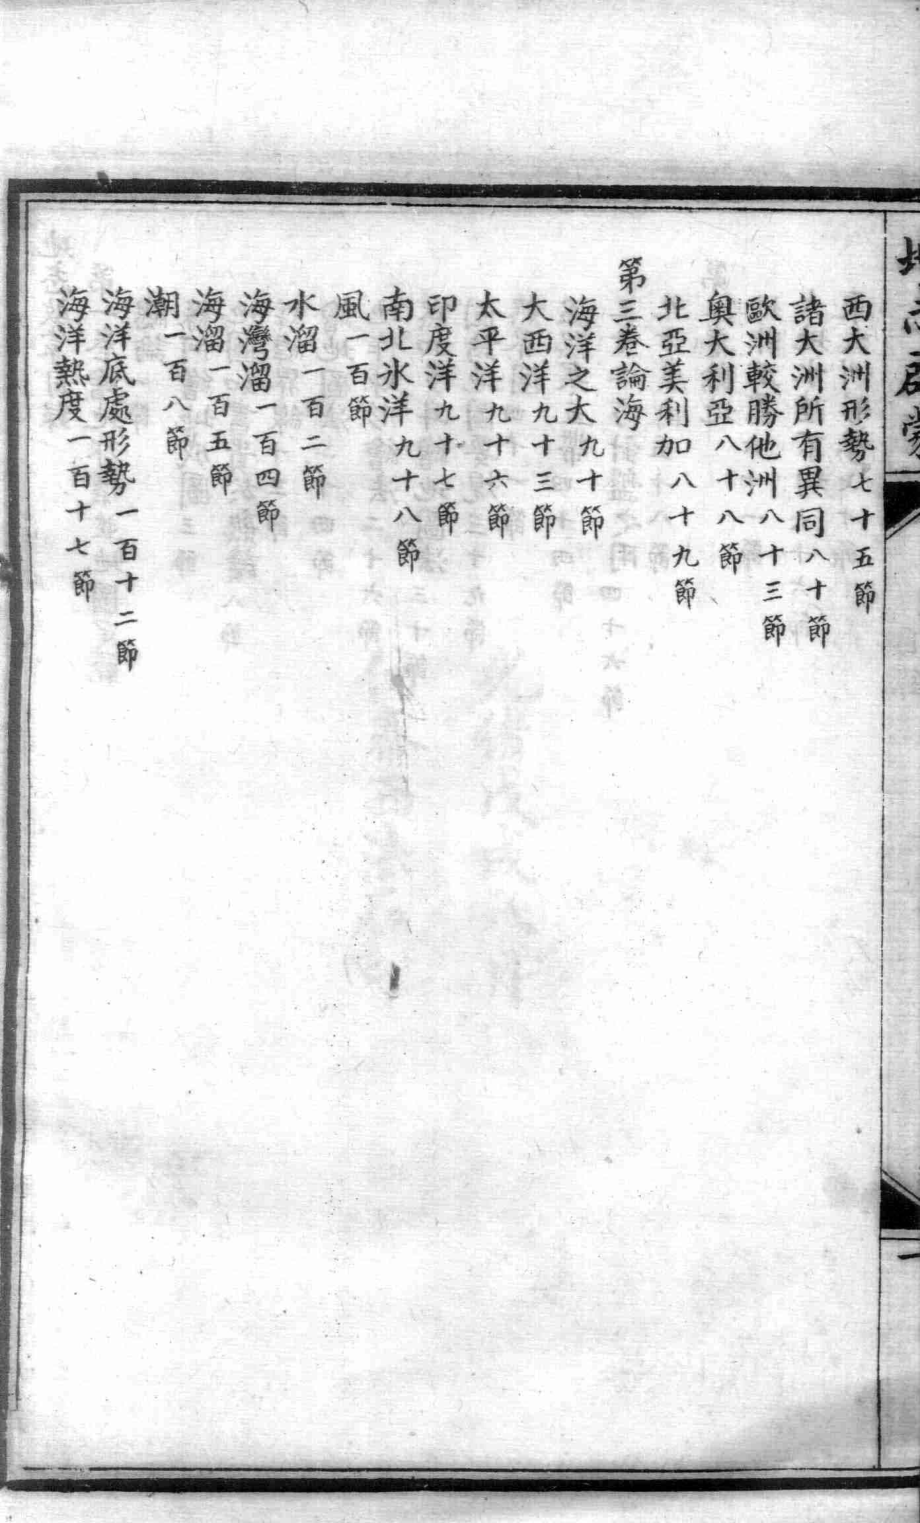 西大洲形勢七十五節
諸大洲所有異同八十節
歐洲較勝他洲八十三節
奧大利亞八十八節
北亞美利加八十九節
第三卷論海
海洋之大九十節
大西洋九十三節
太平洋九十六節
印度洋九十七節
南北氷洋九十八節
風一百節
水溜一百二節
海灣溜一百四節
海溜一百五節
潮一百八節
海洋底處形勢一百十二節
海洋熱度一百十七節